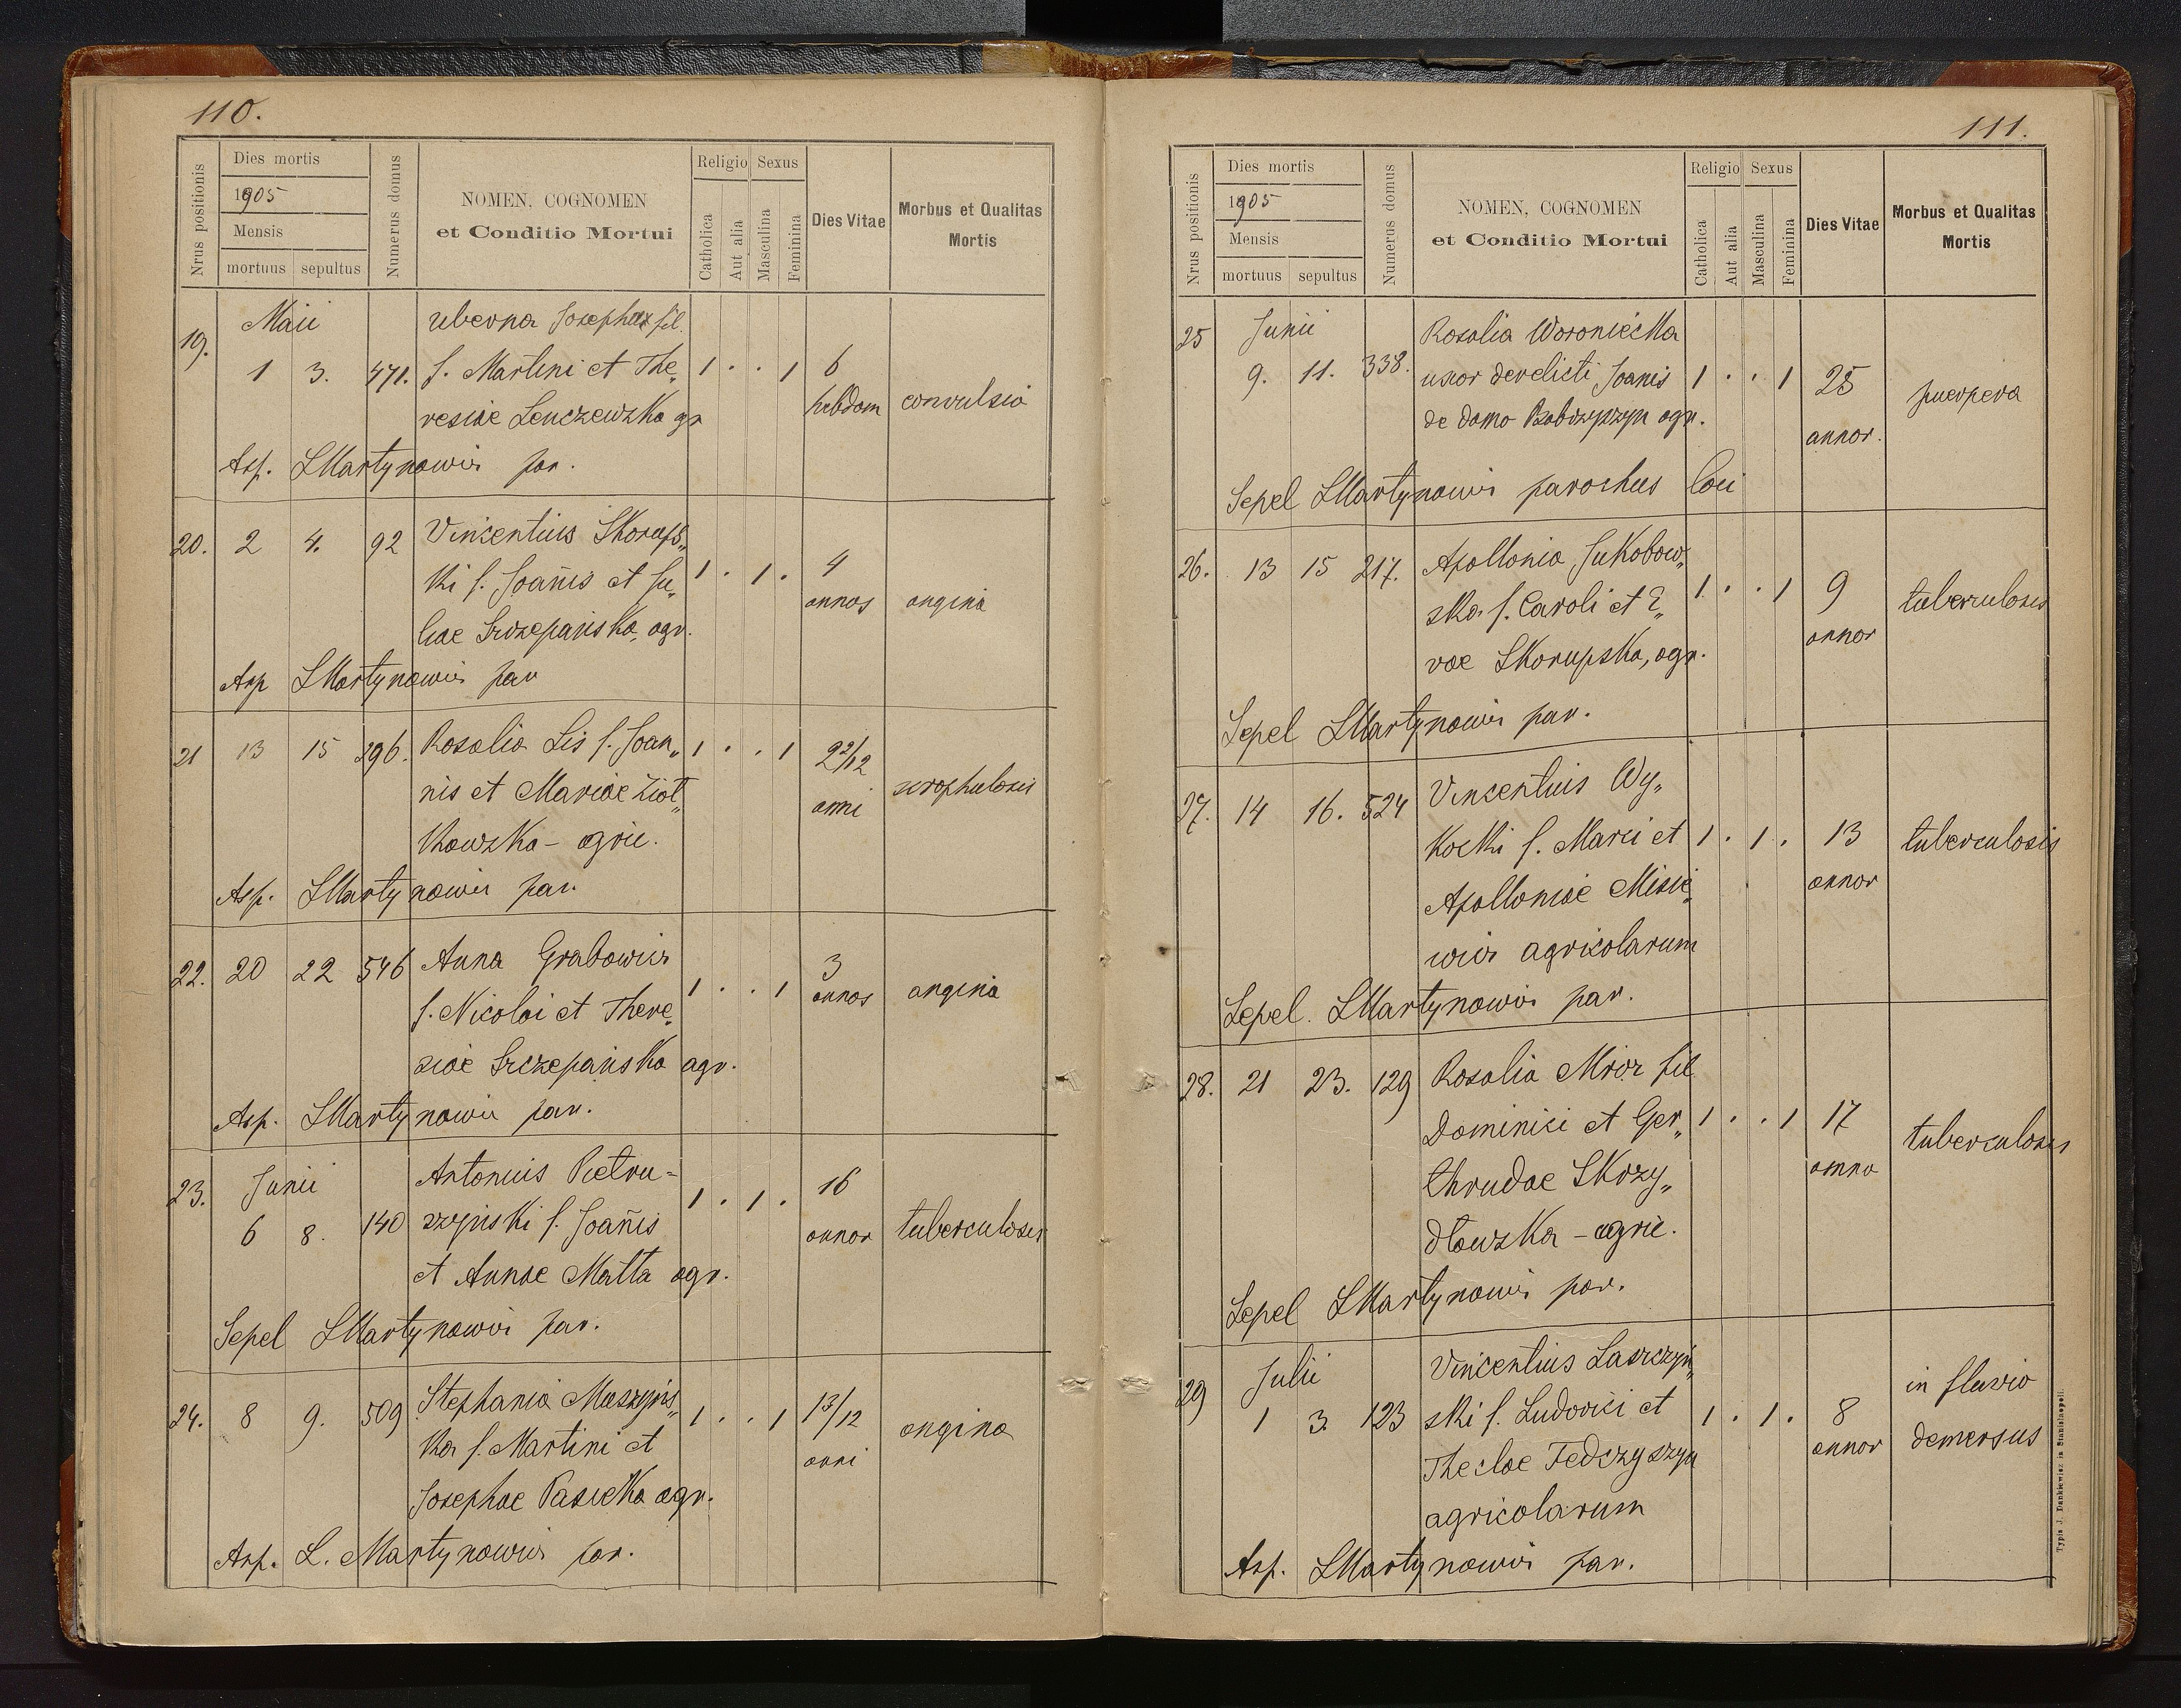 110.
Nrus positionis
Dies mortis
1905
Mensis
mortuus sepultus
Numerus domus
NOMEN, COGNOMEN
et Conditio Mortui
Religio Sexus
Catholica
Aut alia
Masculina
Feminina
Dies Vitae
Morbus et Qualitas
Mortis
19. Maii
1 3. 471.
Josepha fil.
f. Martini et The„
resiae Lenczewska agr
1 . . 1
6
hebdom
convulsio
Asp. LMartynowicz par.
20. 2 4. 92 Vincentius Skorups„
ki f. Joañis et Ju„
liae Szczepańska, agr.
1 . 1 .
4
annos
angina
Asp LMartynowicz par
21 13 15 296. Rosalia Lis f. Joan„
nis et Mariae Ziół„
kowska – agric.
1 . . 1
9 2/12
anni
scrophulosis
Asp. LMartynowicz par.
22. 20 22 546 Anna Grabowicz
f. Nicolai et There„
siae Szczepańska agr.
1 . . 1
3
annos
angina
Asp. LMartynowicz par.
23. Junii
6 8. 140
Antonius Pietru=
szyński f. Joañis
et Annae Matta agr.
1 . 1 .
16
annor
tuberculosis
Sepel LMartynowicz par.
24. 8 9. 509 Stephania Muszyńs„
ka f. Martini et
Josephae Pasieka agr.
1 . . 1
1 3/12
anni
angina
Asp. L. Martynowicz par.
111.
Nrus positionis
Dies mortis
1905
Mensis
mortuus sepultus
Numerus domus
NOMEN, COGNOMEN
et Conditio Mortui
Religio Sexus
Catholica
Aut alia
Masculina
Feminina
Dies Vitae
Morbus et Qualitas
Mortis
25 Junii
9. 11. 338.
Rosalia Woroniecka
uxor derelicti Joanis
de domo agr.
1 . . 1
25
annor.
puerpera
Sepel LMartynowicz parochus loci
26. 13 15 217. Apollonia Jukobow„
ska f. Caroli et E„
vae Skorupska, agr.
1 . . 1
9
annor
tuberculosis
Sepel LMartynowicz par.
27. 14 16. 524 Vincentius Wy„
kocki f. Marci et
Apolloniae Misie„
wicz agricolarum
1 . 1 .
13
annor
tuberculosis
Sepel. LMartynowicz par.
28. 21 23. 129 Rosalia Mroz fil
Dominici et Ger„
thrudae Skrzy„
dłowska – agric.
1 . . 1
17
anno
tuberculosis
Sepel LMartynowicz par.
29 Julii
1 3. 123
Vincentius Laszczyń„
ski f. Ludovici et
Theclae Fedczyszyn
agricolarum
1 . 1 .
8
annor
in fluvio
demersus
Asp. LMartynowicz par.
Typis J. Dankiewicz in Stanislaopoli.